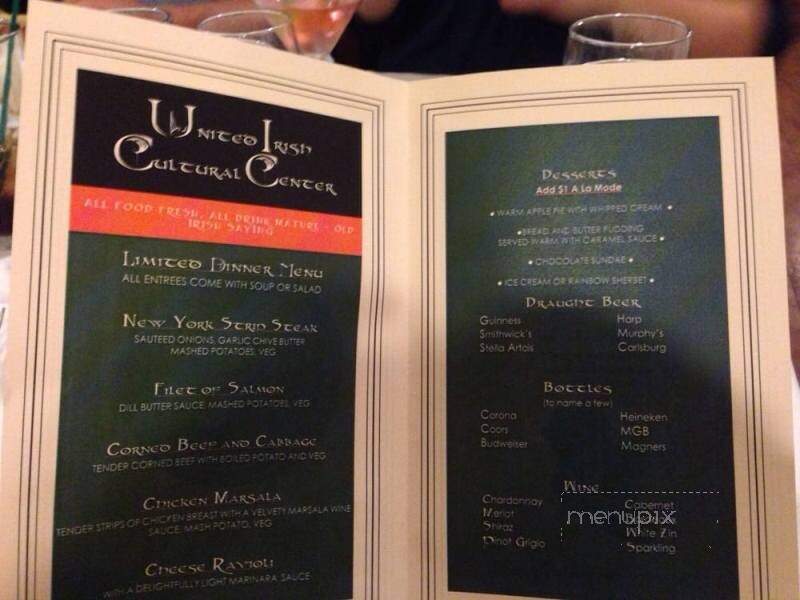 United Irish
Cultural Center
ALL FOOD FRESH, ALL DRINK MATURE - OLD
IRISH SAYING
Limited Dinner Menu
ALL ENTREES COME WITH SOUP OR SALAD
New York Strip Steak
SAUTEED ONIONS, GARLIC CHIVE BUTTER
MASHED POTATOES, VEG
Filet of Salmon
DILL BUTTER SAUCE, MASHED POTATOES, VEG
Corned Beef and Cabbage
TENDER CORNED BEEF WITH BOILED POTATO AND VEG
Chicken Marsala
TENDER STRIPS OF CHICKEN BREAST WITH A VELVETY MARSALA WINE
SAUCE, MASH POTATO, VEG
Cheese Ravioli
WITH A DELIGHTFULLY LIGHT MARINARA SAUCE
Desserts
Add $1 A La Mode
• WARM APPLE PIE WITH WHIPPED CREAM •
•BREAD AND BUTTER PUDDING
SERVED WARM WITH CARAMEL SAUCE •
• CHOCOLATE SUNDAE •
• ICE CREAM OR RAINBOW SHERBET •
Draught Beer
Guinness Harp
Smithwick's Murphy's
Stella Artois Carlsburg
Bottles
(to name a few)
Corona Heineken
Coors MGB
Budweiser Magners
Wine
Chardonnay Cabernet
Merlot
Shiraz White Zin
Pinot Grigio Sparkling
menupix